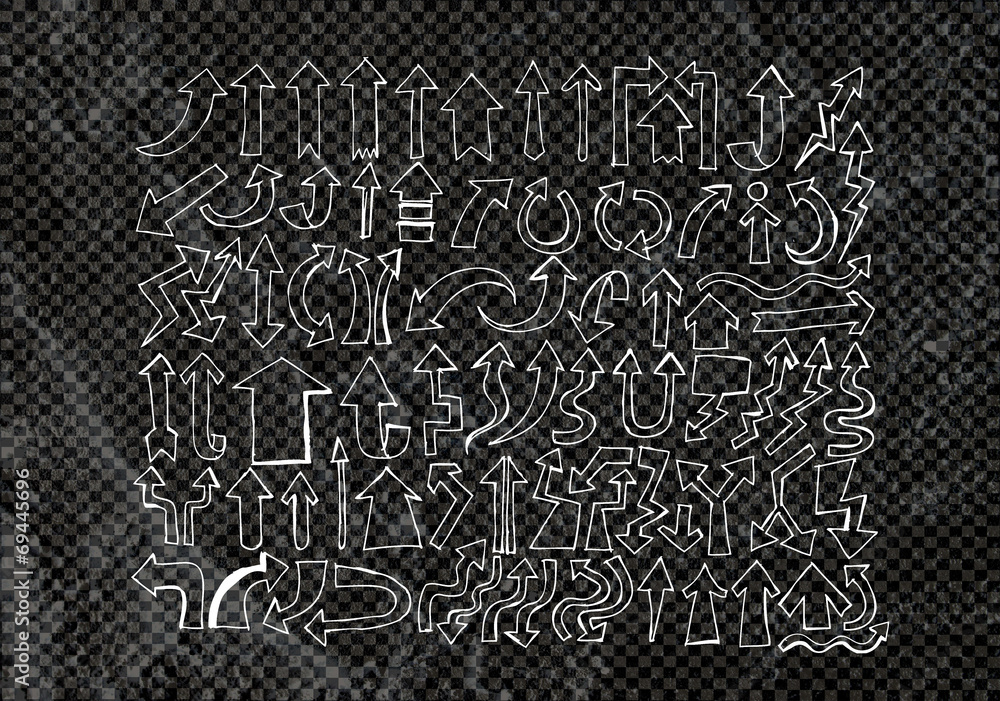 Adobe Stock | #69445696